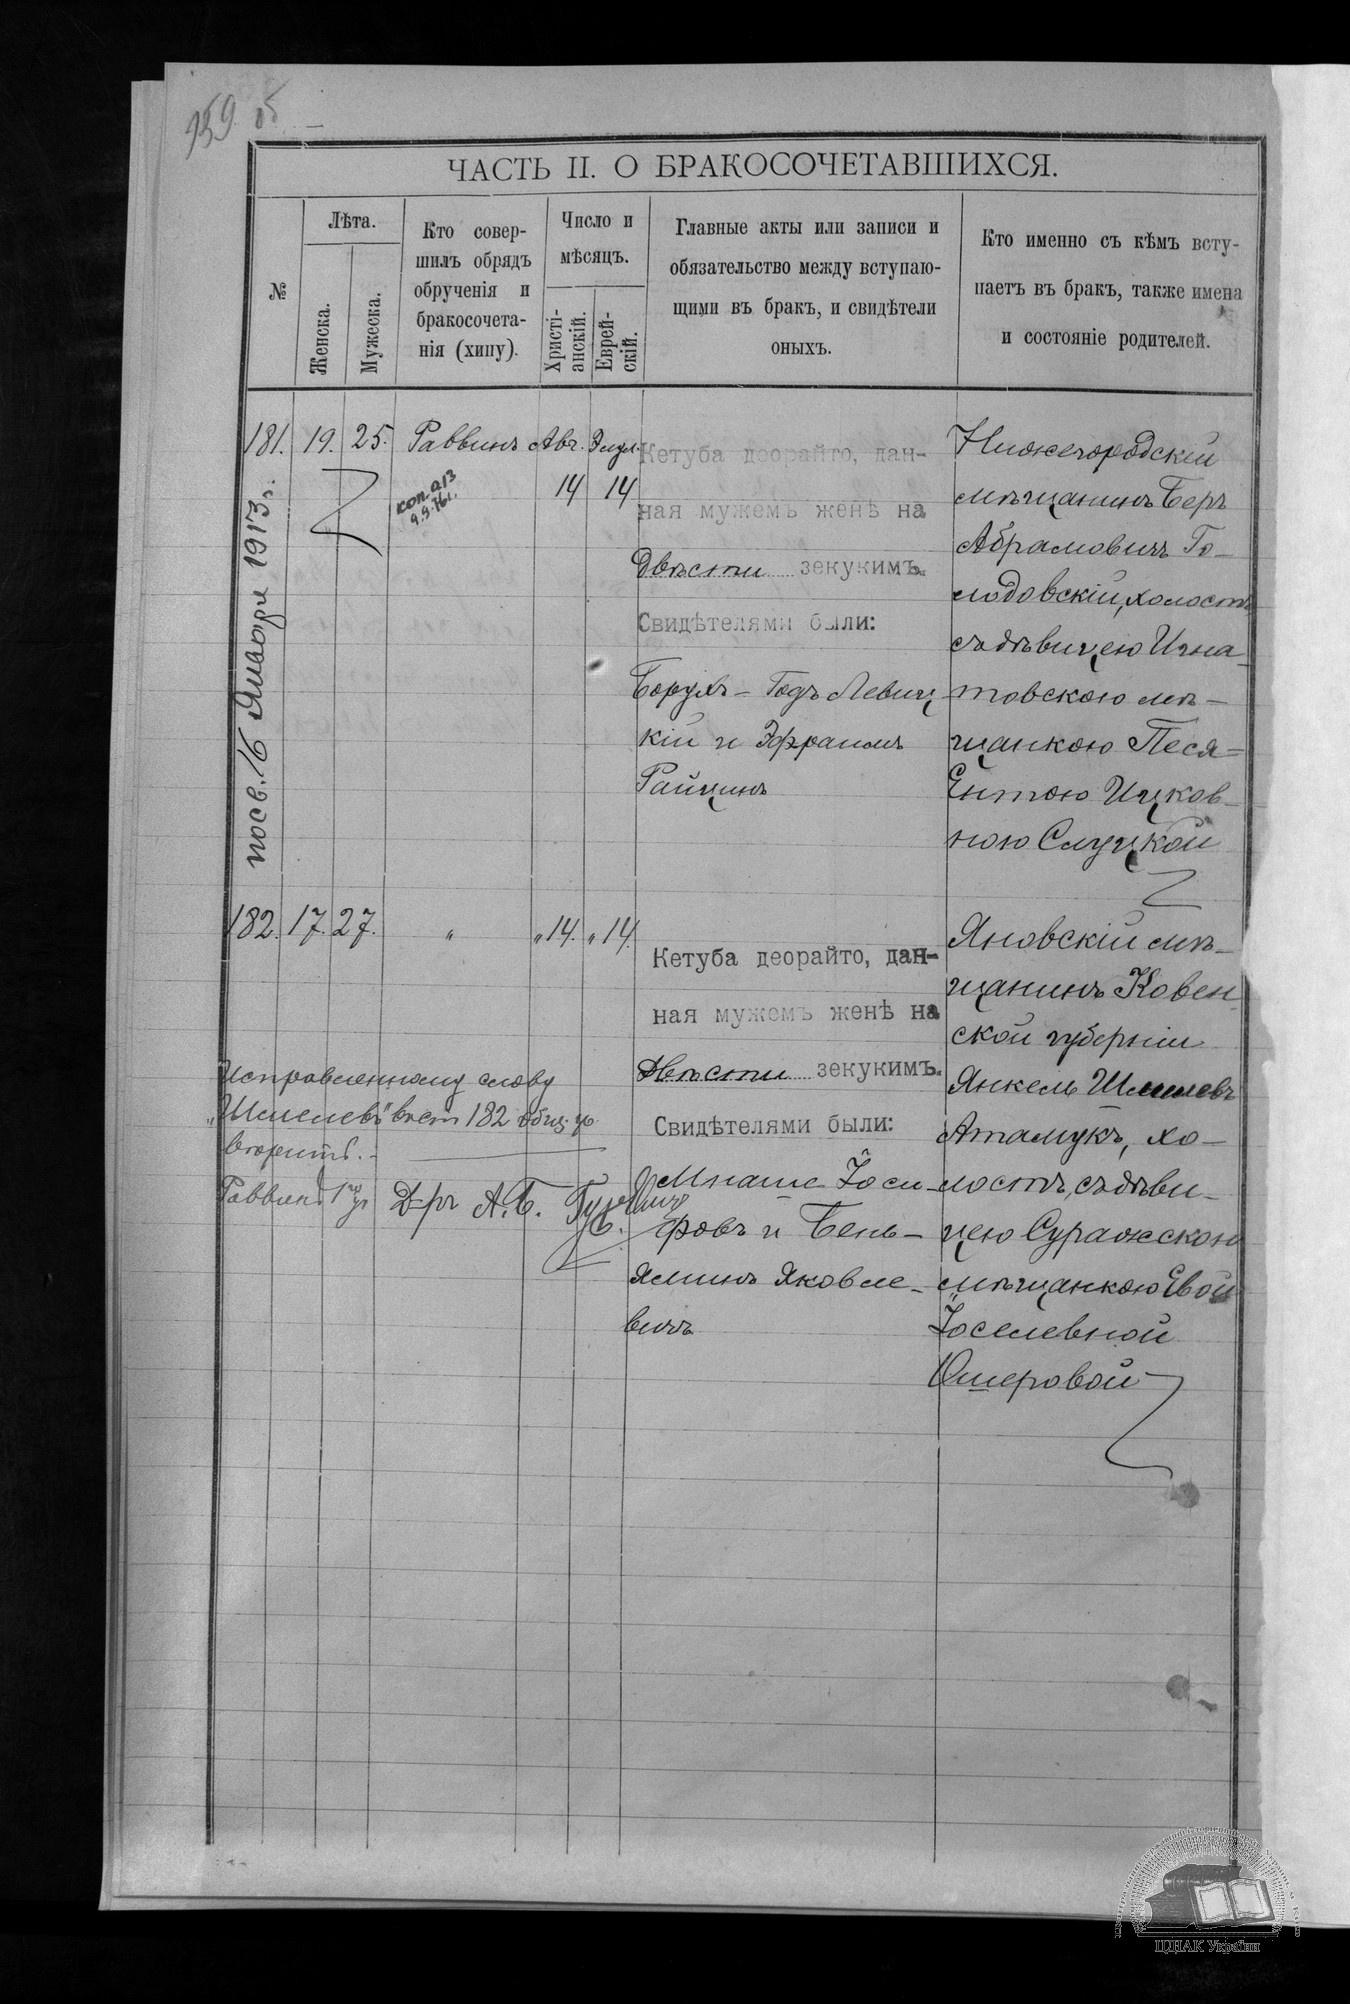 159 об
ЧАСТЬ II. О БРАКОСОЧЕТАВШИХСЯ.
№
Лѣта.
Женска.
Мужеска.
Кто совер-
шилъ обрядъ
обрученія и
бракосочета-
нія (хипу).
Число и
мѣсяцъ.
Христі-
анскій.
Еврей-
скій.
Главные акты или записи и
обязательство между вступаю-
щими въ бракъ, и свидѣтели
оныхъ.
Кто именно съ кѣмъ всту-
паетъ въ бракъ, также имена
и состояніе родителей.
посв. 16 Января 1913 г.
181. 19. 25. Раввинъ Авг. Элул.
14 14
коп.
9.9.76г.
Кетуба деорайто, дан-
ная мужемъ женѣ на
Двѣсти зекукимъ.
Свидѣтелями были:
Борухъ-Годъ Левиц
кій и Эфраимъ
Райцинъ
Нижегородскій
мѣщанинъ Беръ
Абрамовичъ Го-
лодовскій, холостъ
съ дѣвицею Игна-
товскою мѣ-
щанкою Песя-
Ентою Ицков-
ною Слуцкой
182. 17. 27. " " 14. " 14.
Кетуба деорайто, дан-
ная мужемъ женѣ на
Двѣсти зекукимъ.
Свидѣтелями были:
Мнаше Іоси-
фовъ и Бень-
яминъ Яковле-
вичъ
Яновскій мѣ-
щанинъ Ковен
ской губерніи
Янкель Шмилевъ
Атамукъ, хо-
лостъ, съ дѣви-
цею Суражскою
мѣщанкою Евой
Іоселевной
Ошеровой
Исправленному слову
"Шмилевъ" въ ст 182
вѣрить.
Раввинъ Д-ръ А. Б. Гуревичъ
ЦДІАК України